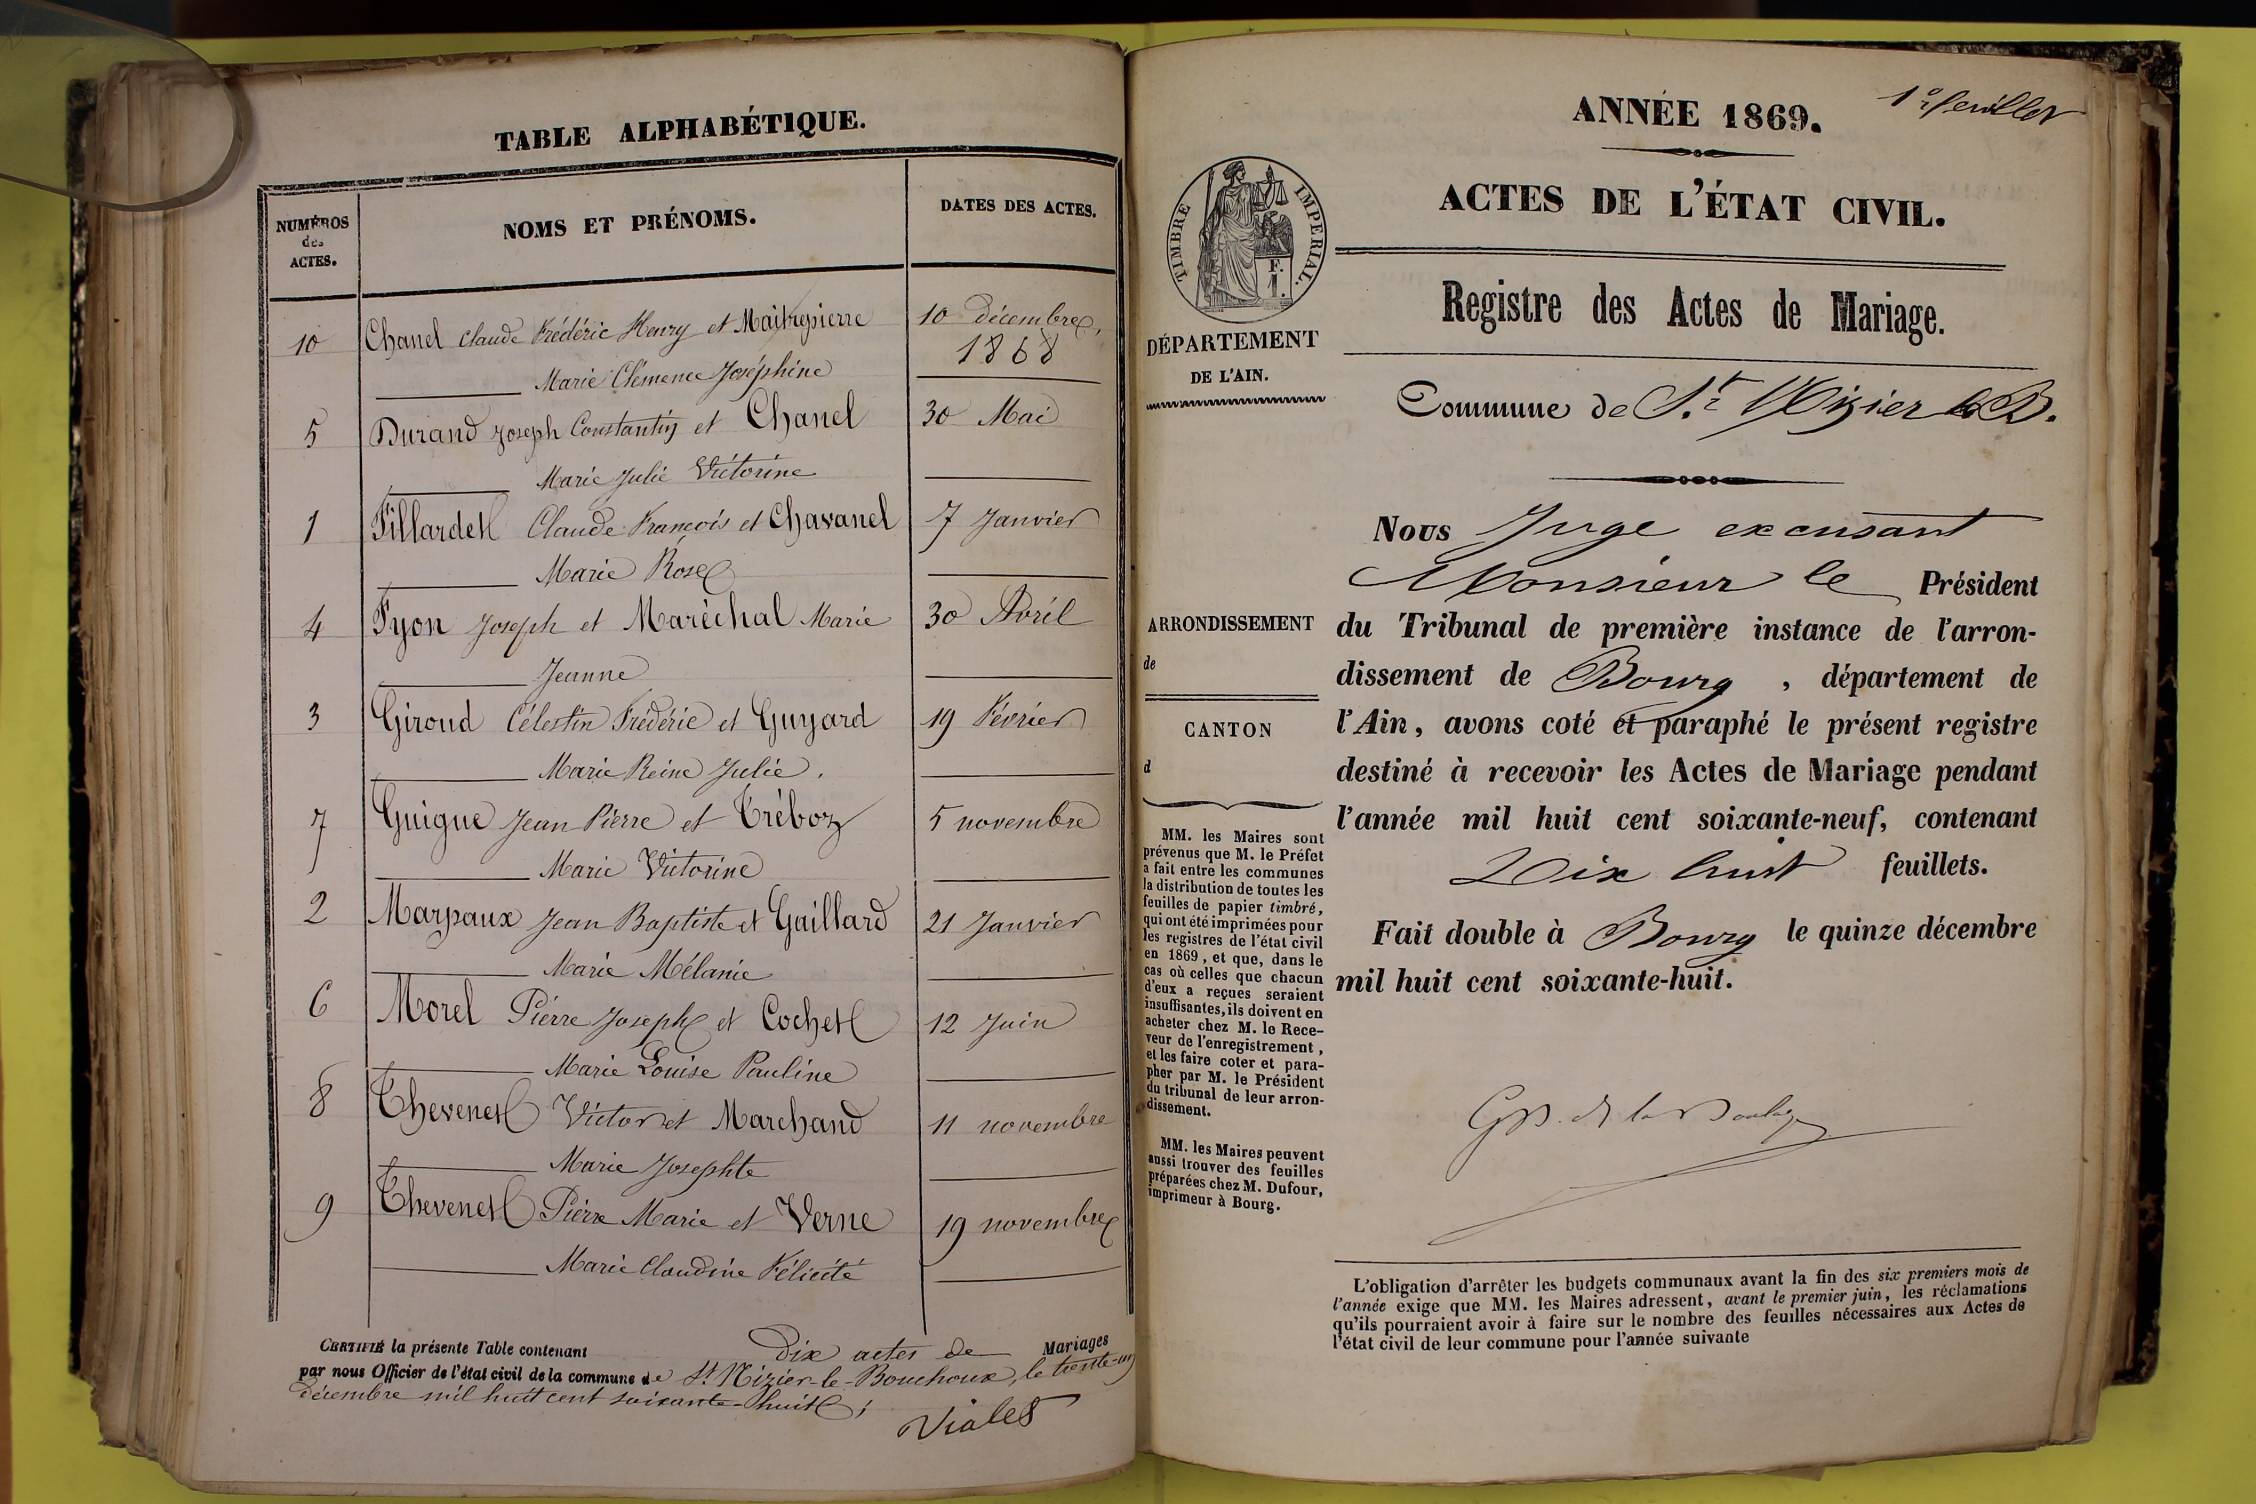 TABLE ALPHABÉTIQUE.
NUMÉROS
des
ACTES.
NOMS ET PRÉNOMS.
DATES DES ACTES.
10 Chanel Claude Frédéric Henry et Maitrepierre 10 décembre,
Marie Clémence Joséphine 1868
5 Durand Joseph Constantin et Chanel 30 Mai
Marie Julie Victorine
1 Fillardet Claude François et Chavanel 7 Janvier
Marie Rose
4 Fyon Joseph et Maréchal Marie 30 Avril
Jeanne
3 Giroud Célestin Frédéric et Guyard 19 Février
Marie Reine Julie.
7 Guigue Jean Pierre et Tréboz 5 novembre
Marie Victorine
2 Marpaux Jean Baptiste et Gaillard 21 Janvier
Marie Mélanie
6 Morel Pierre Joseph et Cochet 12 Juin
Marie Louise Pauline
8 Thevenet Victor et Marchand 11 novembre
Marie Josephte
9 Thevenet Pierre Marie et Verne 19 novembre
Marie Claudine Félicité
CERTIFIÉ la présente Table contenant Dix actes de Mariages
par nous Officier de l'état civil de la commune de St Nizier-le-Bouchoux, le trente-un
décembre mil huit cent soixante-huit;
Vialet
1er feuillet
ANNÉE 1869.
ACTES DE L'ÉTAT CIVIL.
TIMBRE IMPERIAL.
F.
1.
DÉPARTEMENT
DE L'AIN.
Registre des Actes de Mariage.
Commune de St Nizier le B.
ARRONDISSEMENT
de
CANTON
d
MM. les Maires sont
prévenus que M. le Préfet
a fait entre les communes
la distribution de toutes les
feuilles de papier timbré,
qui ont été imprimées pour
les registres de l'état civil
en 1869, et que, dans le
cas où celles que chacun
d'eux a reçues seraient
insuffisantes, ils doivent en
acheter chez M. le Rece-
veur de l'enregistrement,
et les faire coter et para-
pher par M. le Président
du tribunal de leur arron-
dissement.
MM. les Maires peuvent
aussi trouver des feuilles
préparées chez M. Dufour,
imprimeur à Bourg.
Nous Juge excusant
Monsieur le Président
du Tribunal de première instance de l'arron-
dissement de Bourg, département de
l'Ain, avons coté et paraphé le présent registre
destiné à recevoir les Actes de Mariage pendant
l'année mil huit cent soixante-neuf, contenant
Dix huit feuillets.
Fait double à Bourg le quinze décembre
mil huit cent soixante-huit.
L'obligation d'arrêter les budgets communaux avant la fin des six premiers mois de
l'année exige que MM. les Maires adressent, avant le premier juin, les réclamations
qu'ils pourraient avoir à faire sur le nombre des feuilles nécessaires aux Actes de
l'état civil de leur commune pour l'année suivante